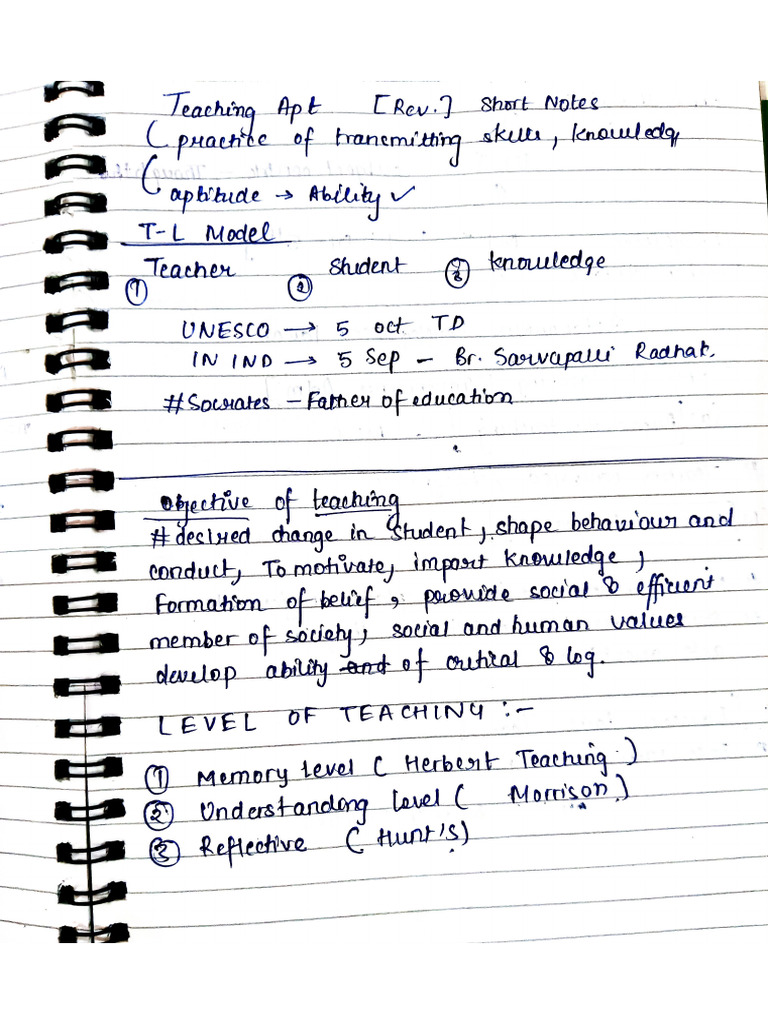 Teaching Apt [Rev.] Short Notes
practice of transmitting skills, knowledg
aptitude → Ability ✓
T-L Model
Teacher Student knowledge
① ② ③
UNESCO → 5 oct TD
IN IND → 5 Sep – Dr. Sarvapalli Radhak.
#Socrates – Father of education
Objective of teaching
# desired change in student, shape behaviour and
conduct, To motivate, impart knowledge,
Formation of belief, provide social & efficient
member of society, social and human values
develop ability and of critical & log.
LEVEL OF TEACHING :-
① Memory level ( Herbert Teaching )
② Understanding level ( Morrison )
③ Reflective ( Hunt's )